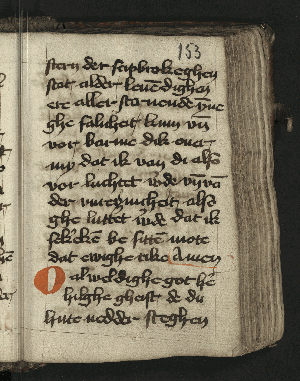 153
stern der scipbrokeghen
stat alder leuendighen
ere aller steruende yne
ghe salicheit kum vn̄
vor barme dik ouer
my dat ik van di also
vor luchtet vn̄ vā
der vnreynicheit also
ghe luttet dat ik
be sitten mote
dat ewighe rike Amen
O al weldighe got he
hilghe gheist de du
hute nedder steghen